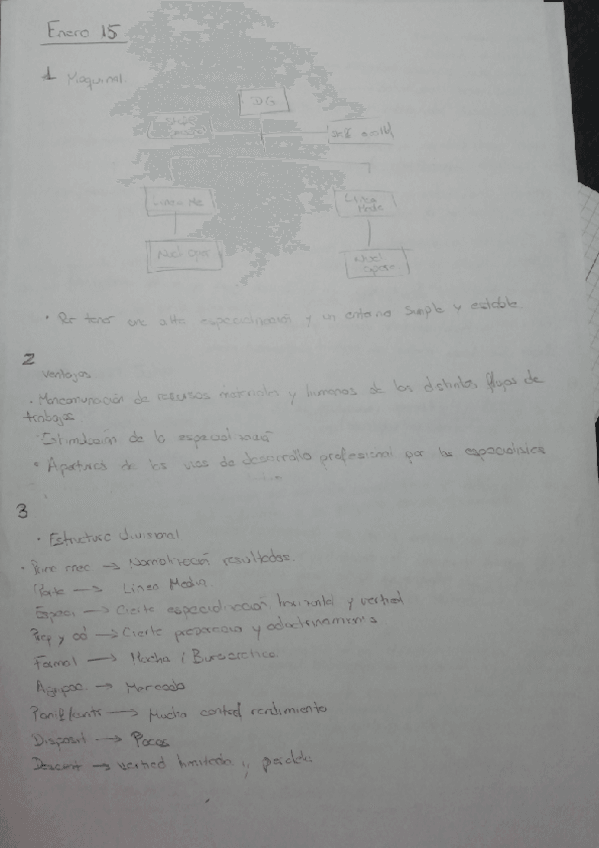 Enero 15
1 Maquinal
DG
Linea Me
Linea Media
Nucl oper
Nucl opera.
· Por tener una alta especialización y un entorno simple y estable
2
ventajas
· Mancomunación de recursos materiales y humanos de los distintos flujos de
trabajos
· Estimulación de la especialización
· Apertura de las vías de desarrollo profesional por los especialistas
3
· Estructura divisional
· Princ mec → Normalización resultados.
Parte → Linea Media.
Especi → Cierta especialización horizontal y vertical
Prep y ad → Cierta preparación y adoctrinamiento
Formal → Mucha / Burocrática
Agrupac → Mercado
Planif/contr → Mucho control rendimiento
Disposit → Pocos
Descent → vertical limitada y paralela